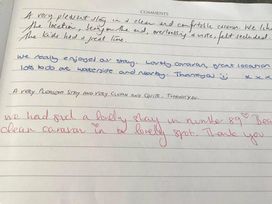 COMMENTS
A very pleasant stay in a clean and comfortable caravan. We like
the location, being on the end, overlooking a white, felt secluded
The kids had a great time.
We really enjoyed our stay. Lovely caravan, great location
lots to do at waterside and nearby. Thankyou x x x
A very pleasant stay and very clean and quite. Thankyou.
we had such a lovely stay in number 89
clean caravan in a lovely spot. Thank you